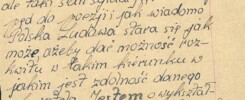 ale taki sam
pęd do poezji i jak wiadomo
Polska Ludowa stara się jak
może ażeby dać możność roz-
kwitu w takim kierunku w
jakim jest zdolność danego
Jestem o wykształ-